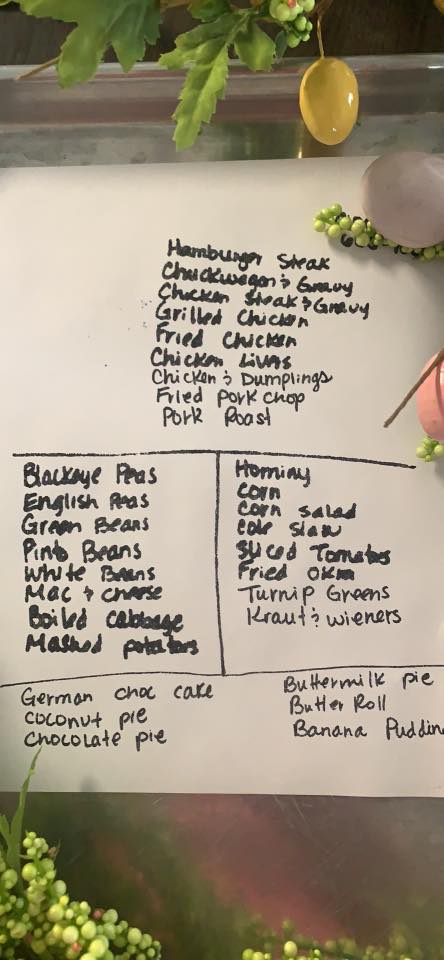 Hamburger Steak
Chuckwagon & Gravy
Chicken Steak & Gravy
Grilled Chicken
Fried Chicken
Chicken Livas
Chicken & Dumplings
Fried Pork Chop
Pork Roast
Blackeye Peas
English Peas
Green Beans
Pinto Beans
White Beans
Mac & cheese
Boiled cabbage
Mashed potatoes
Hominy
Corn
Corn Salad
Cole Slaw
Sliced Tomatoes
Fried Okra
Turnip Greens
Kraut & wieners
German choc cake
Coconut pie
Chocolate pie
Buttermilk pie
Butter Roll
Banana Puddin